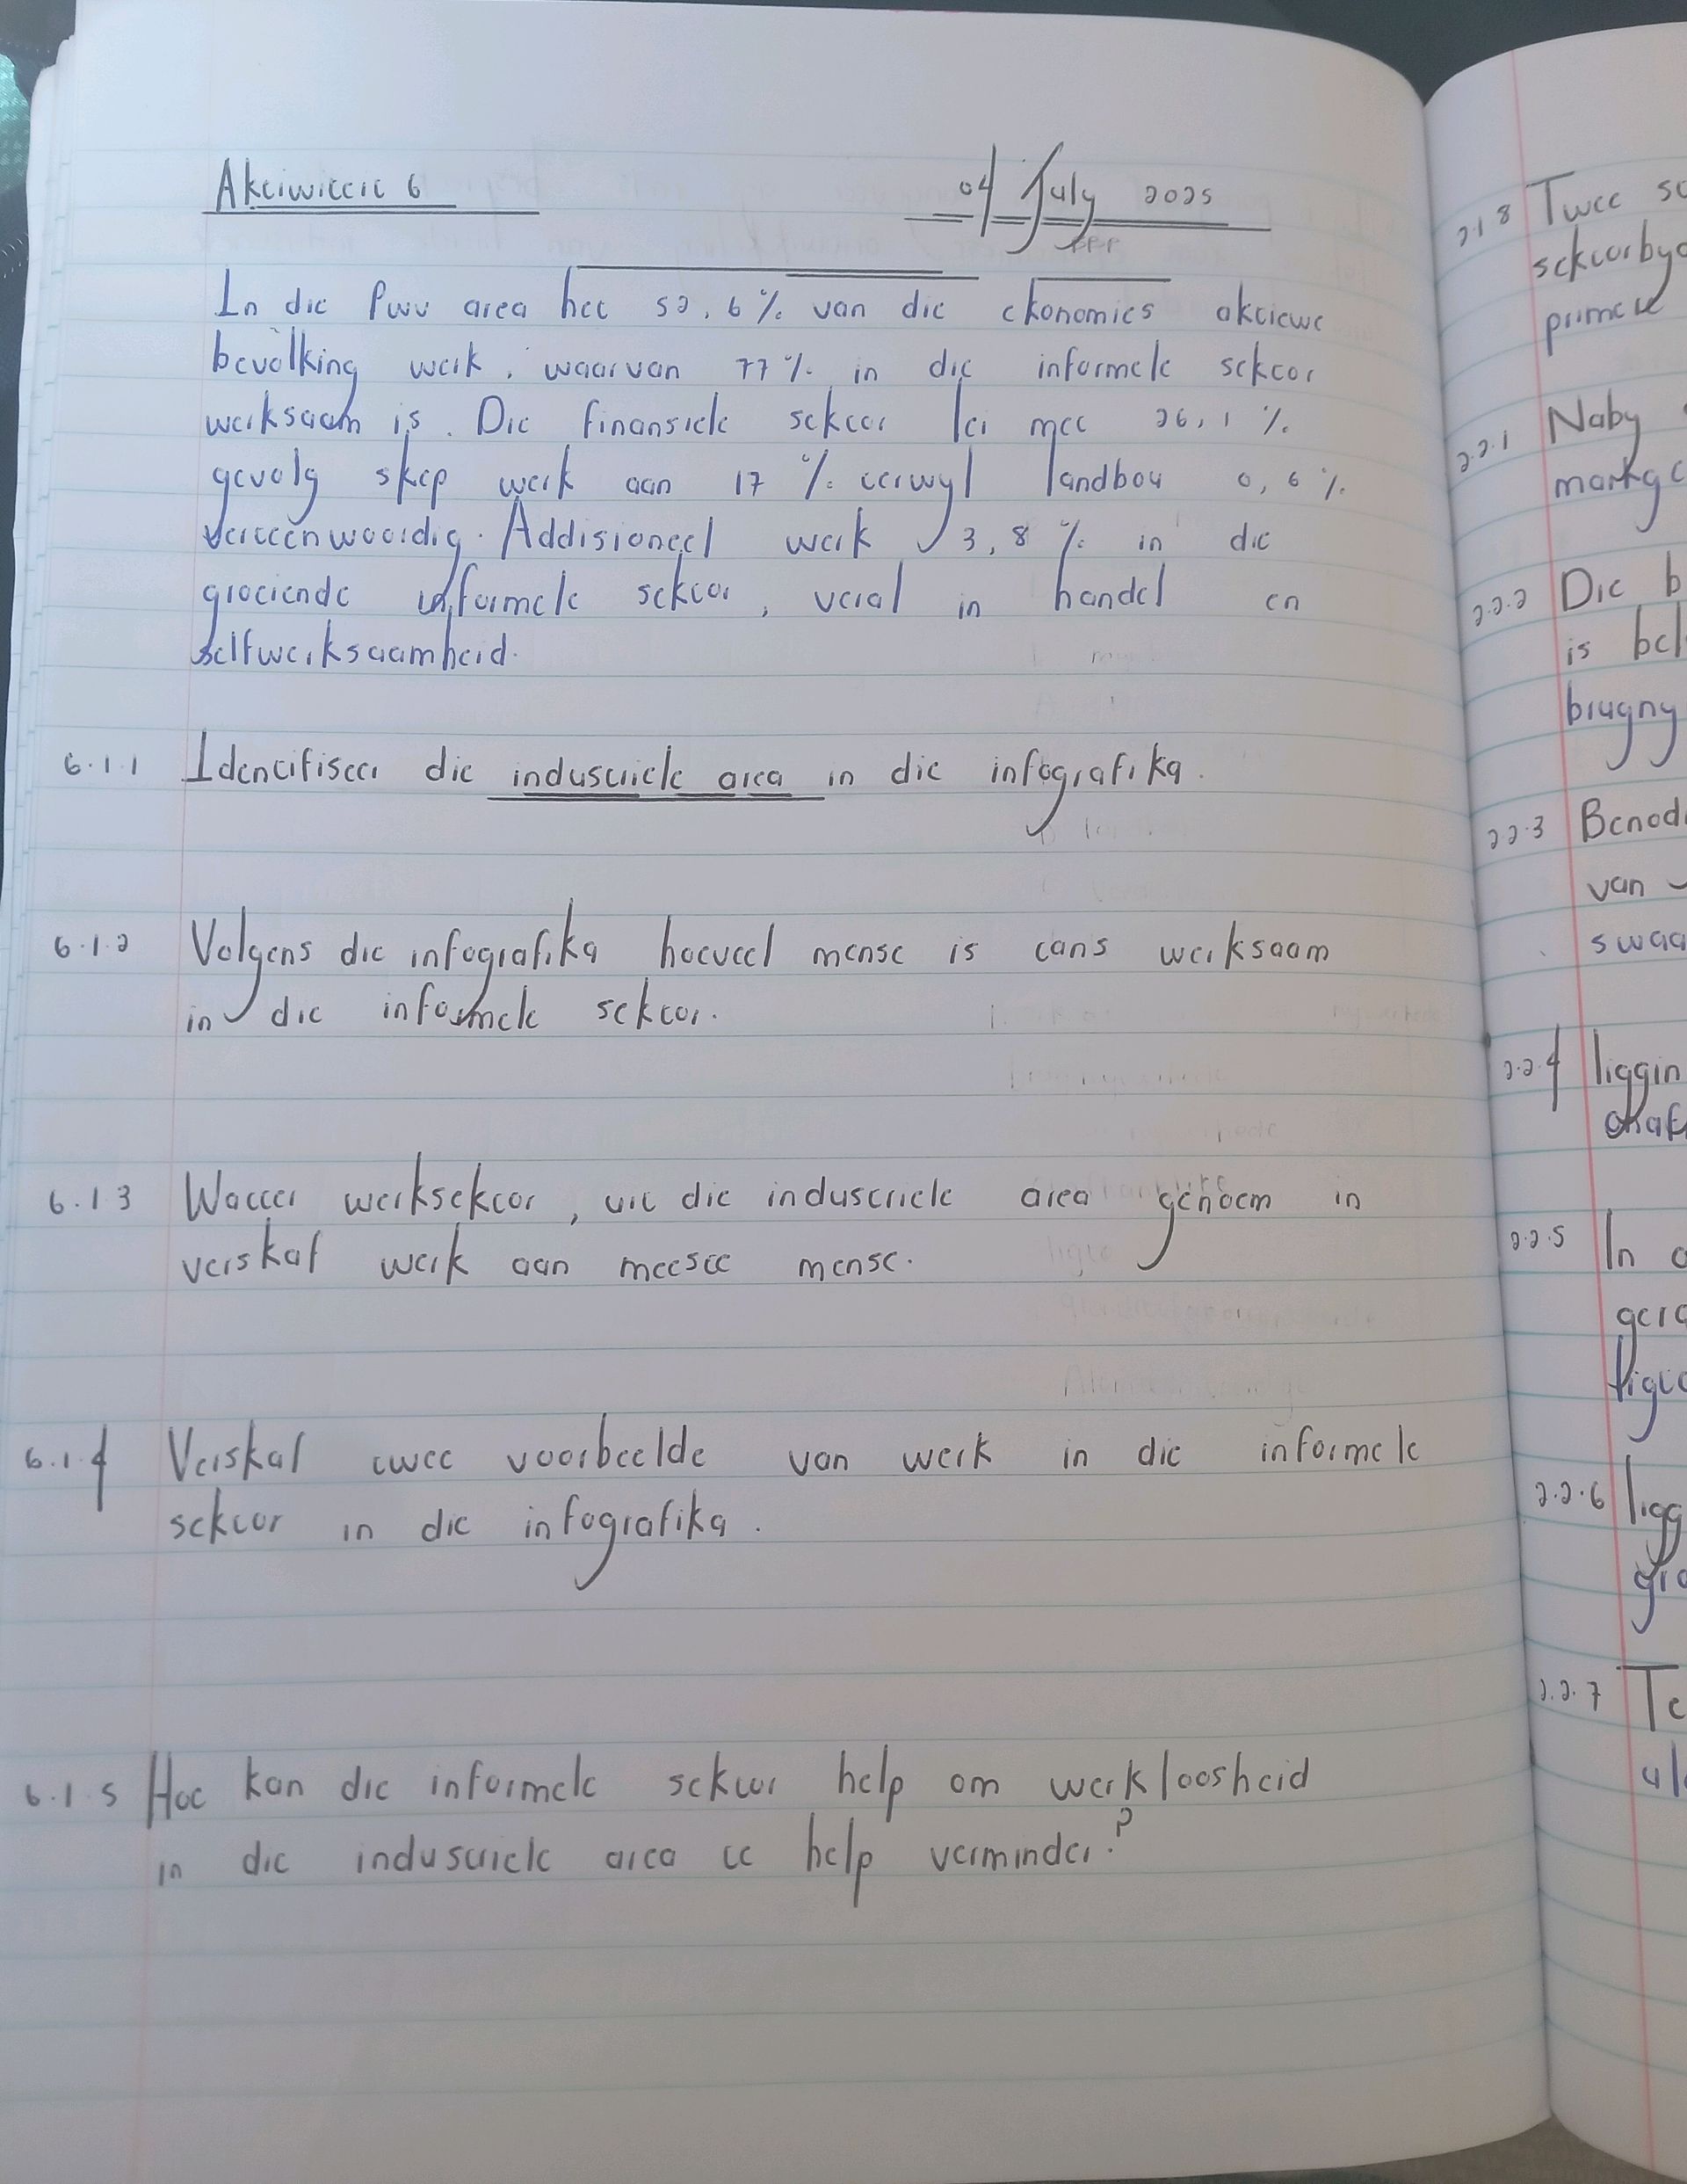 Aktiwiteit 6
04 July 2025
In die PWV area het 52,6% van die ekonomies aktiewe
bevolking werk, waarvan 77% in die informele sektor
werksaam is. Die finansiele sektor lei met 26,1%
gevolg skep werk aan 17% terwyl landbou 0,6%
verteenwoordig. Addisioneel werk 3,8% in die
groeiende informele sektor, veral in handel en
selfwerksaamheid.
6.1.1 Identifiseer die industriele area in die infografika.
6.1.2 Volgens die infografika hoeveel mense is tans werksaam
in die informele sektor.
6.1.3 Watter werksektor, uit die industriele area genoem in
verskaf werk aan meeste mense.
6.1.4 Verskaf twee voorbeelde van werk in die informele
sektor in die infografika.
6.1.5 Hoe kan die informele sektor help om werkloosheid
in die industriele area te help verminder?
2.1.8 Twee
primere
2.2.1 Naby
2.2.2 Die
is
2.2.3
van
2.2.4
2.2.5 In
2.2.6
2.2.7